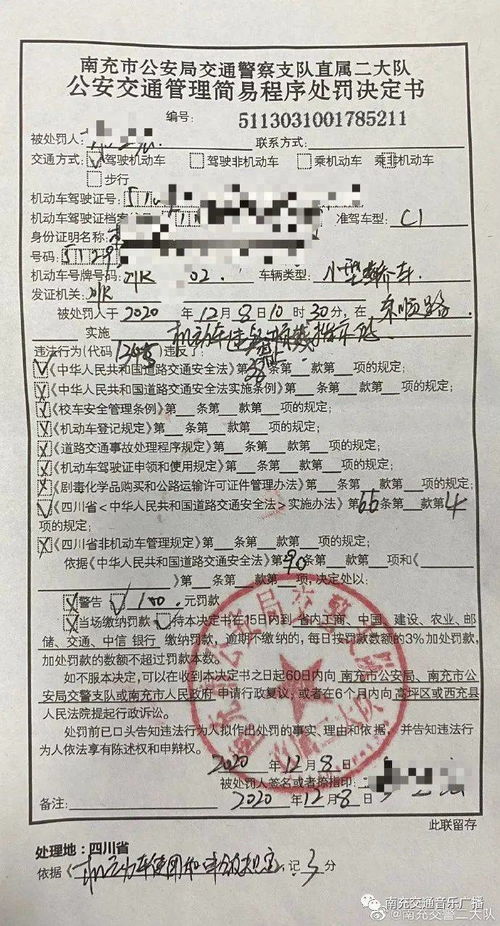 南充市公安局交通警察支队直属二大队
公安交通管理简易程序处罚决定书
编号: 5113031001785211
被处罚人: 联系方式:
交通方式: 驾驶机动车 驾驶非机动车 乘机动车 乘非机动车
步行
机动车驾驶证号: 51
机动车驾驶证档案 准驾车型: C1
身份证明名称:
号码: 5129
机动车号牌号码: 川R 02. 车辆类型: 小型轿车.
发证机关: 川R
被处罚人于 2020 年 12 月 8 日 10 时 30 分, 在 顺路
实施 机动车违 标线指示的
违法行为(代码 )违反了:
《中华人民共和国道路交通安全法》第38条第 款第 项的规定;
《中华人民共和国道路交通安全法实施条例》第 条第 款第 项的规定;
《校车安全管理条例》第 条第 款第 项的规定;
《机动车登记规定》第 条第 款第 项的规定;
《道路交通事故处理程序规定》第 条第 款第 项的规定;
《机动车驾驶证申领和使用规定》第 条第 款第 项的规定;
《剧毒化学品购买和公路运输许可证件管理办法》第 条第 款第 项的规定;
《四川省<中华人民共和国道路交通安全法>实施办法》第66条第 款第4
项的规定;
《四川省非机动车管理规定》第 条第 款第 项的规定;
依据《中华人民共和国道路交通安全法》第90条第 款第 项和《
》第 条第 款第 项, 决定处以:
警告 100 元罚款
当场缴纳罚款 持本决定书在15日内到 省内工商、中国、建设、农业、邮
储、交通、中信 银行 缴纳罚款, 逾期不缴纳的, 每日按罚款数额的3%加处罚款,
加处罚款的数额不超过罚款本数。
如不服本决定, 可以在收到本决定书之日起60日内向 南充市公安局、南充市公
安局交警支队或南充市人民政府 申请行政复议, 或者在6个月内向 高坪区或西充县
人民法院提起行政诉讼。
处罚前已口头告知违法行为人拟作出处罚的事实、理由和依据, 并告知违法行
为人依法享有陈述权和申辩权。
2020 年 12 月 8 日
被处罚人签名或者捺指印:
备注: 2020 年 12 月 8 日
此联留存
处理地: 四川省
依据《机动车驾 使用规定》记 3 分
南充交通音乐广播
@南充交警二大队